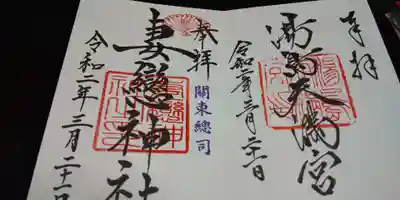 奉拝
湯島天満宮
令和二年三月二十一日
奉拝
關東総司
妻戀神社
令和二年三月二十一日